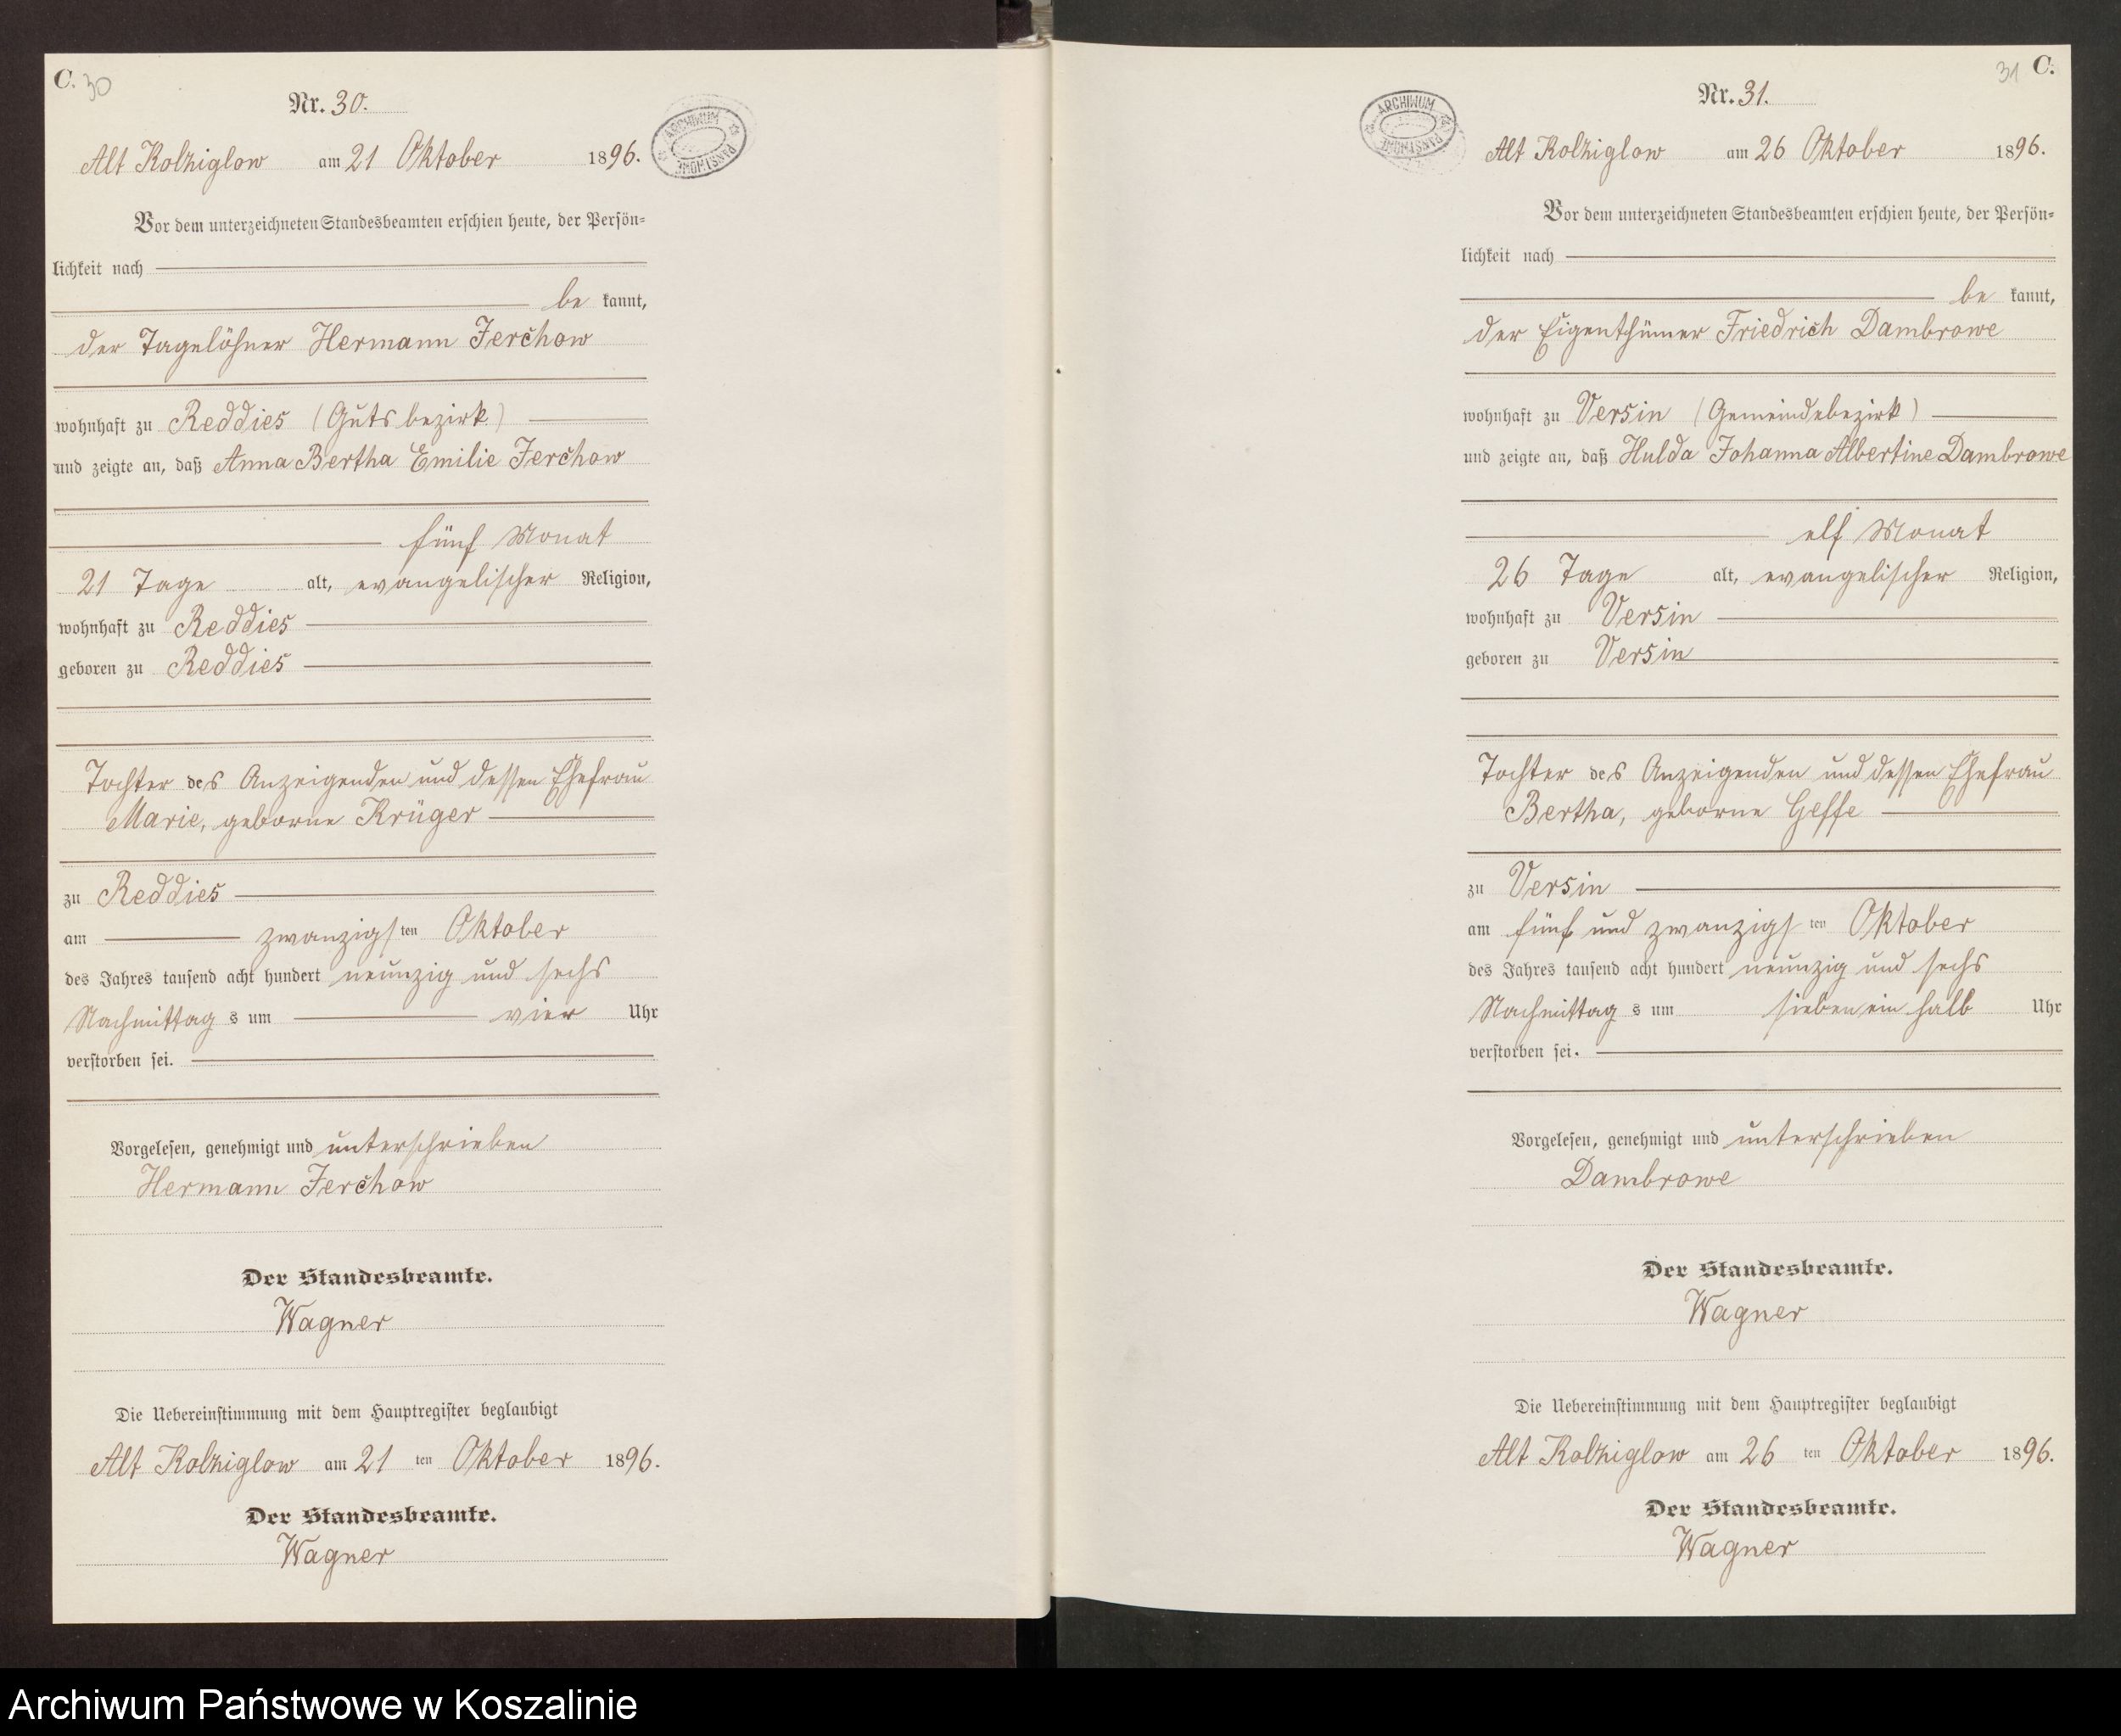 C. 30
Nr. 30.
Alt Kolziglow am 21 Oktober 1896.
Vor dem unterzeichneten Standesbeamten erschien heute, der Persön=
lichkeit nach
be kannt,
der Tagelöhner Hermann Jerchow
wohnhaft zu Reddies (Gutsbezirk)
und zeigte an, daß Anna Bertha Emilie Jerchow
fünf Monat
21 Tage alt, evangelischer Religion,
wohnhaft zu Reddies
geboren zu Reddies
Tochter des Anzeigenden und dessen Ehefrau
Marie, geborne Krüger
zu Reddies
am zwanzigsten Oktober
des Jahres tausend acht hundert neunzig und sechs
Nachmittags um vier Uhr
verstorben sei.
Vorgelesen, genehmigt und unterschrieben
Hermann Jerchow
Der Standesbeamte.
Wagner
Die Uebereinstimmung mit dem Hauptregister beglaubigt
Alt Kolziglow am 21 ten Oktober 1896.
Der Standesbeamte.
Wagner
ARCHIWUM PAŃSTWOWE
31 C.
Nr. 31.
ARCHIWUM PAŃSTWOWE
Alt Kolziglow am 26 Oktober 1896.
Vor dem unterzeichneten Standesbeamten erschien heute, der Persön=
lichkeit nach
be kannt,
der Eigenthümer Friedrich Dambrowe
wohnhaft zu Versin (Gemeindebezirk)
und zeigte an, daß Hulda Johanna Albertine Dambrowe
elf Monat
26 Tage alt, evangelischer Religion,
wohnhaft zu Versin
geboren zu Versin
Tochter des Anzeigenden und dessen Ehefrau
Bertha, geborne Geffe
zu Versin
am fünf und zwanzigsten Oktober
des Jahres tausend acht hundert neunzig und sechs
Nachmittags um sieben ein halb Uhr
verstorben sei.
Vorgelesen, genehmigt und unterschrieben
Dambrowe
Der Standesbeamte.
Wagner
Die Uebereinstimmung mit dem Hauptregister beglaubigt
Alt Kolziglow am 26 ten Oktober 1896.
Der Standesbeamte.
Wagner
Archiwum Państwowe w Koszalinie